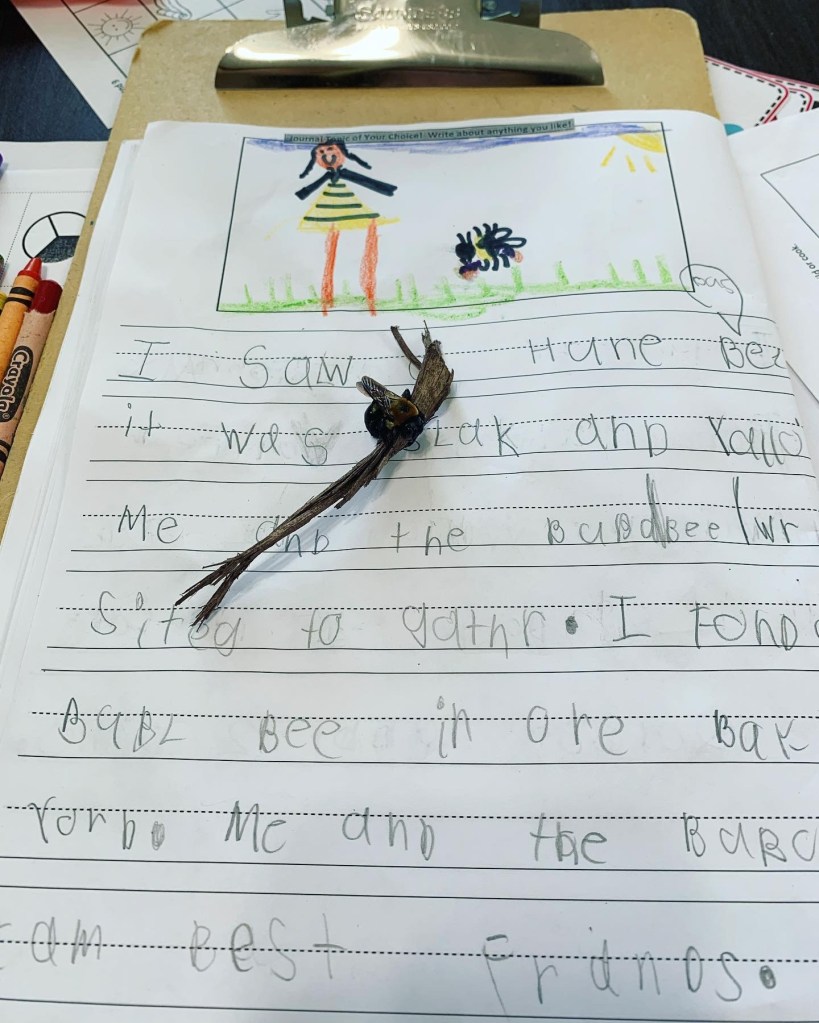 Journal Topic of Your Choice! Write about anything you like!
I saw Hune Bee
it was BLak anb Yallo
Me anb the BuBdBee wr
Siteg to gathr. I FOND
BaBL Bee in ore Bak
Yarb. Me anb the
am Best Franos.
Crayola